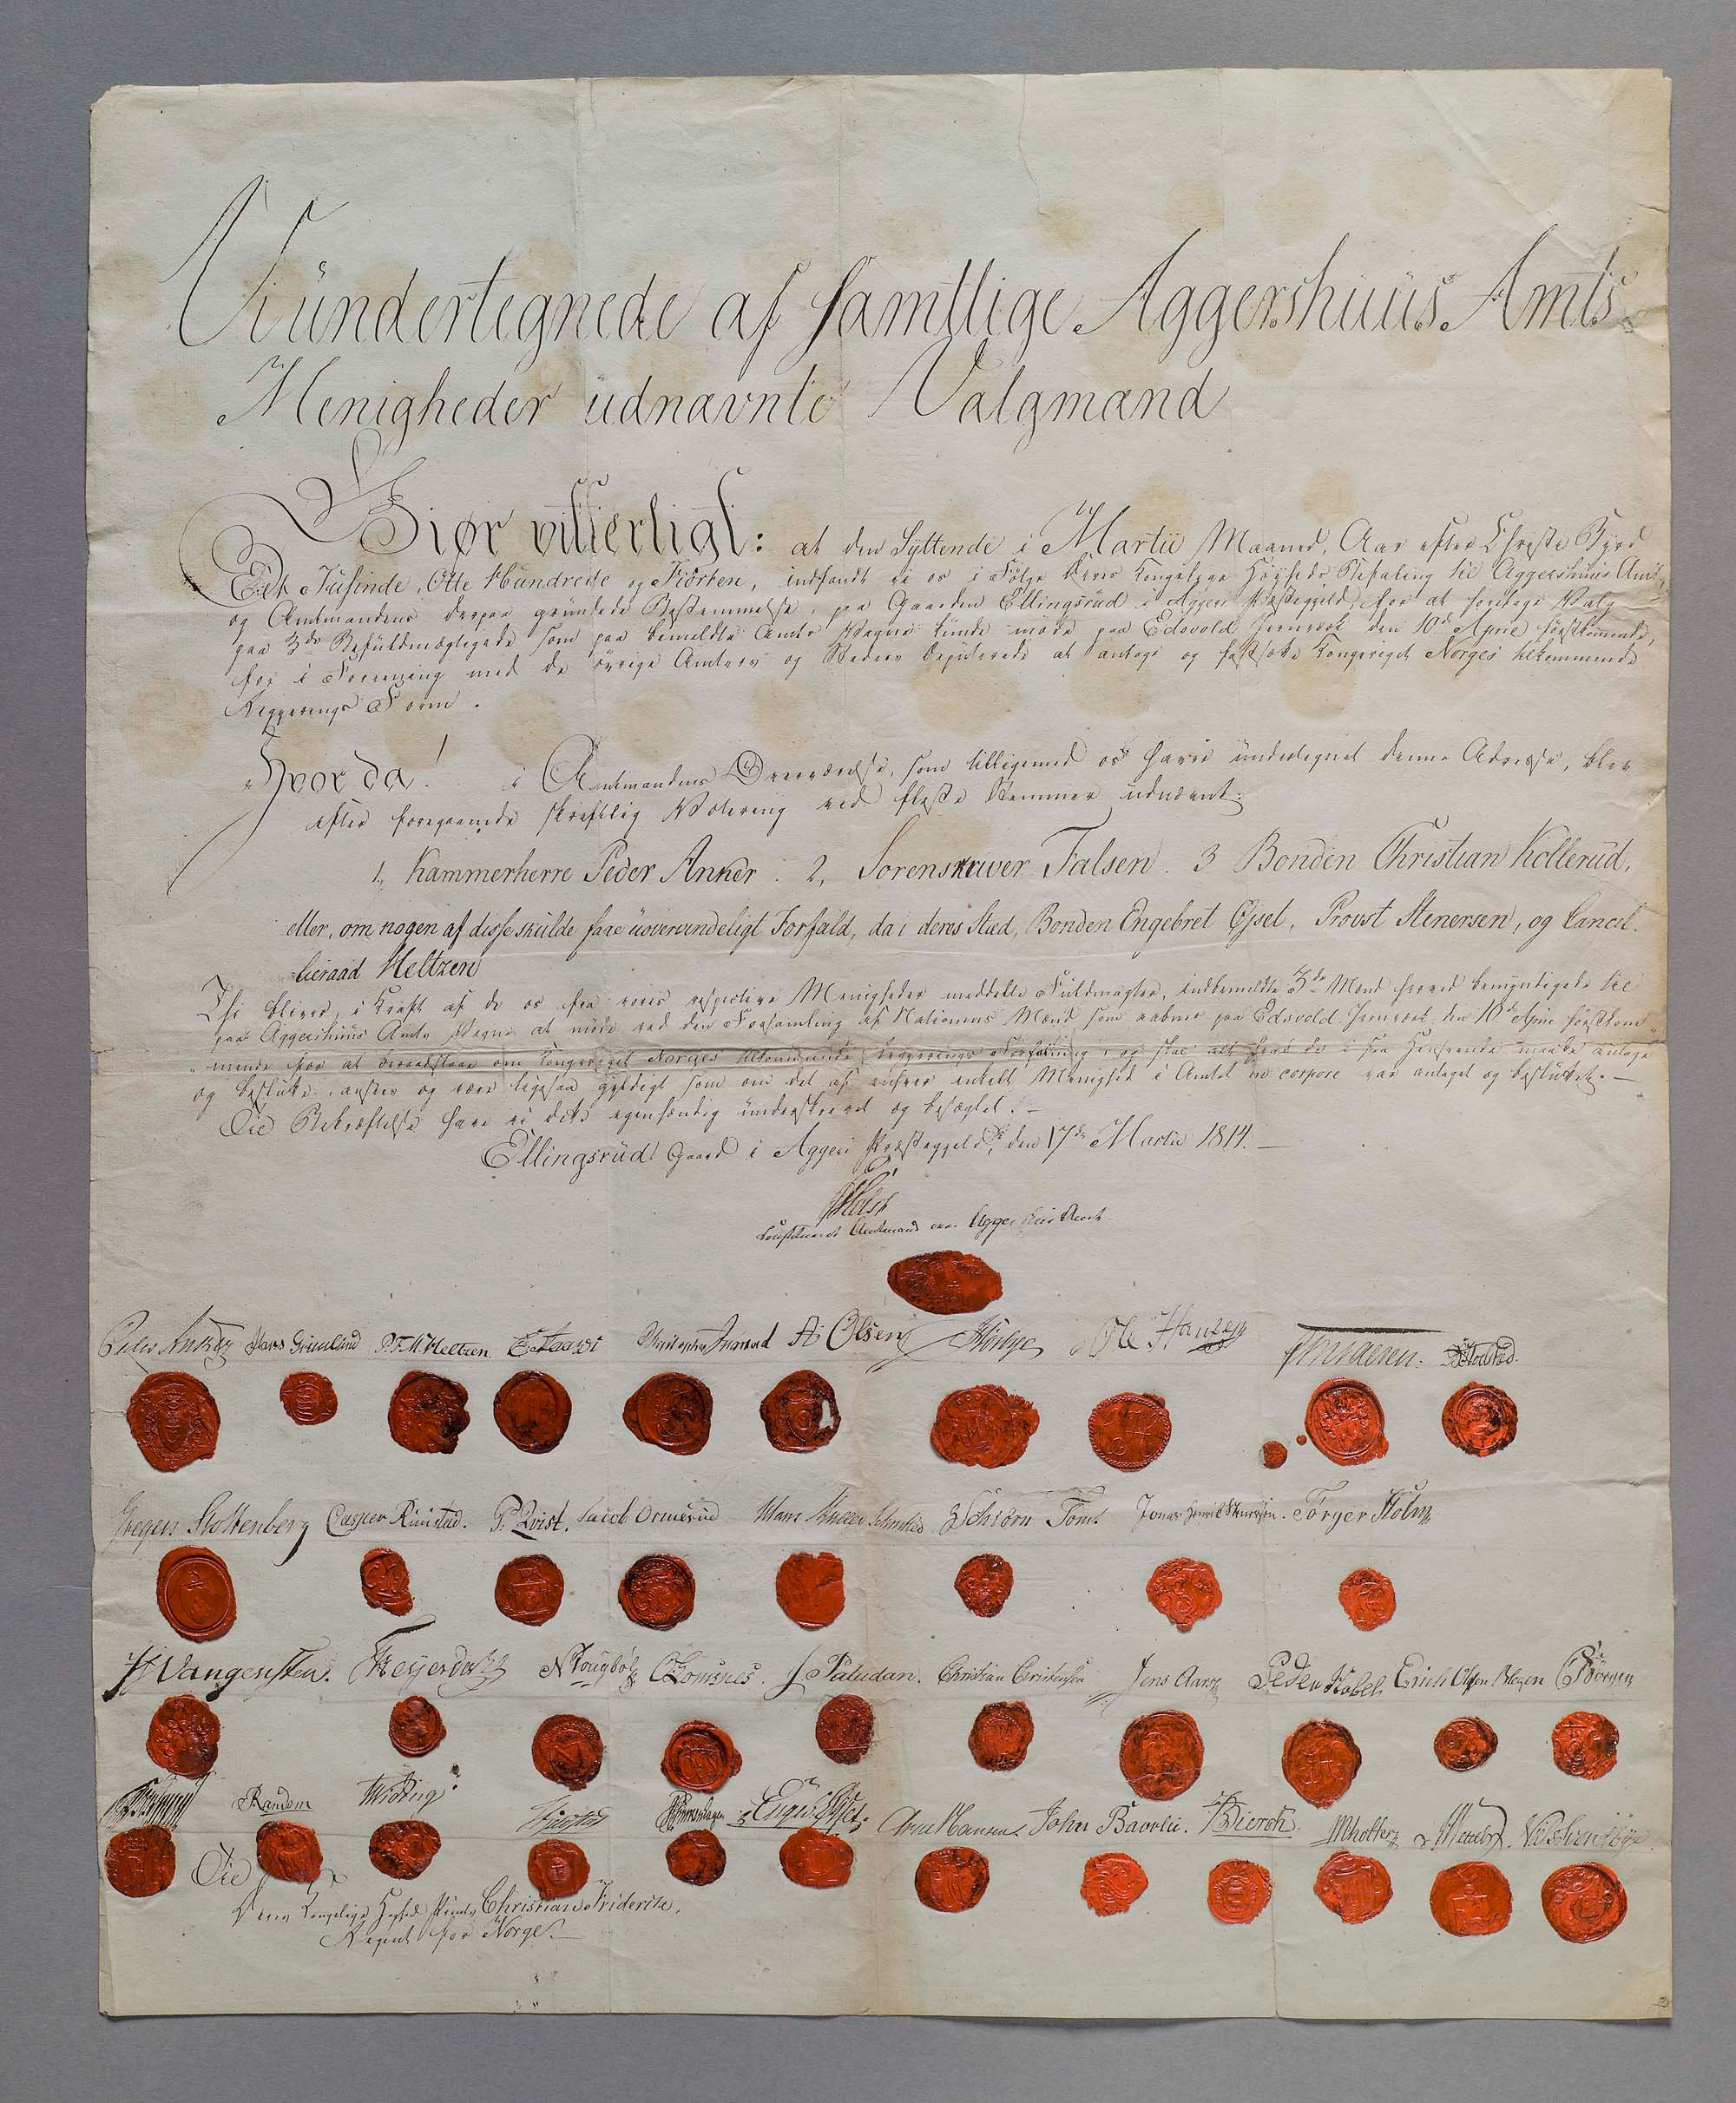 Vi ündertegnede af samtlige Aggershüüs Amts
Menigheder üdnævnte Valgmænd
Giør vitterligt: at den Syttende i Martii Maaned, Aar efter Christi Byrd
Eet Tüsinde, Otte Hündrede og Fiorten, indfandt vi os i Følge Hans Kongelige Høyheds Befaling til Aggershuus Amt,
og Amtmandens derpaa gründede Bestemmelse, paa Gaarden Ellingsrüd i Aggers Præstegjeld, for at foretage Valg
paa 3de Befuldmægtigede som paa bemeldte Amts Vegne künde møde paa Edsvold Jernværk den 10de April førstkomende,
for i Forening med de øvrige Amters og Steders Deputerede at antage og fastsætte Kongeriget Norges tilkommende
Regierings Form.
Hvor da! i Amtmandens Overværelse, som tilligemed os have ündertegnet denne Adresse, blev
efter foregaaende skriftlig Votering ved fleste Stemmer udnævnt:
1, Kammerherre Peder Anker. 2, Sorenskriver Falsen. 3 Bonden Christian Kollerüd,
eller, om nogen af disse skülde have üovervindeligt Forfald, da i deres Sted, Bonden Engebret Gjset, Provst Stenersen, og Cancel-
lieraad Heltzen
Thi blive, i Kraft af de os fra vores respective Menigheder meddelte Füldmagter, indbemeldte 3de Mænd herved bemyndigede til
paa Aggershuus Amts Vegne at møde ved den Forsamling af Nationens Mænd som aabnes paa Edsvold Jernværk den 10de April førstkom-
mende for at beraadslaae om Kongeriget Norges tilkommende Regierings Forfatning, og skal alt hvad de i saa Henseende maatte antage
og beslutte, ansees og være ligesaa gyldigt som om det af enhver enkelt Menighed i Amtet in corpore var antaget og besluttet. —
Til Bekræftelse have vi dette egenhændig ünderskrevet og beseglet. —
Ellingsrüd Gaard i Aggers Præstegjeld, den 17de Martii 1814. —
Holst
Constitueret Amtmand over Aggershuus Amt
Peder Anker Hans Grünlund P. F. M. Heltzen A. Olsen Ole Hansen
Gregers Stoltenberg Casper Rünstad. P. Qvist. Jacob Ormerüd Schiørn Tomt Jonas Henrich Torger Holm
H Vangensten. Heyerdahl J Paludan. Christian Christensen Jens Aars Peder Kobel Erich Olsen Børgen
Randem Wiborg Arne Hansen. John Bierch
Til
Hans Kongelige Høyhed Prinds Christian Friderik,
Regent for Norge. —